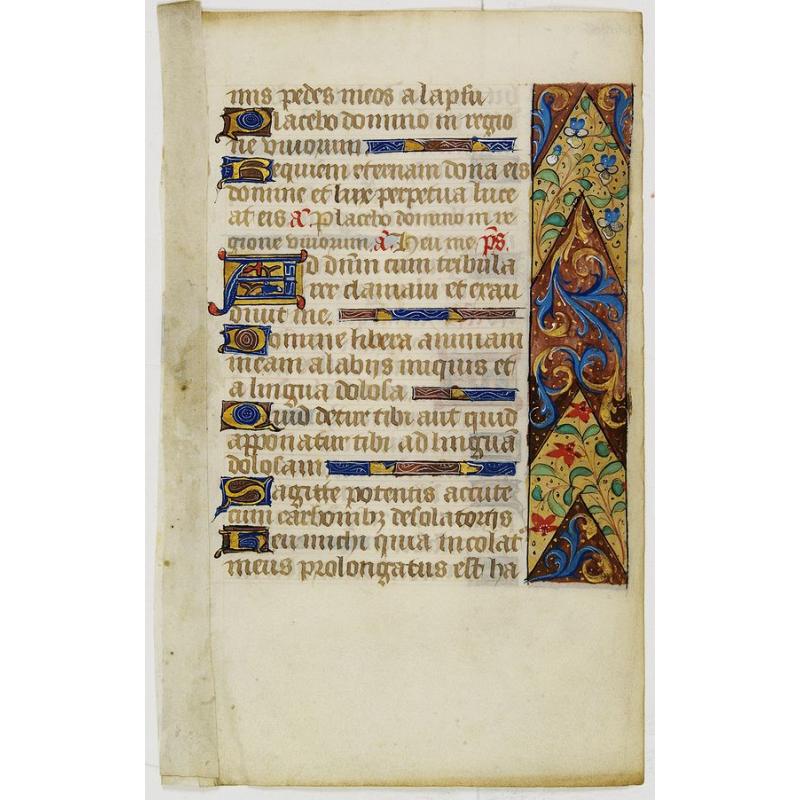 mis pedes meos a lapsu
Placebo domino in regio
ne vivorum
Requiem eternam dona eis
domine et lux perpetua luce
at eis a᷑. Placebo domino in re
gione vivorum. a᷑. Heu me. p̄s.
Ad dn̄m cum tribula
rer clamaui et exau
diuit me.
Domine libera animam
meam a labijs iniquis et
a lingua dolosa
Quid detur tibi aut quid
apponatur tibi ad linguā
dolosam
Sagitte potentis acute
cum carbonibꝫ desolatorijs
Heu michi quia incolat᷑
meus prolongatus est ha